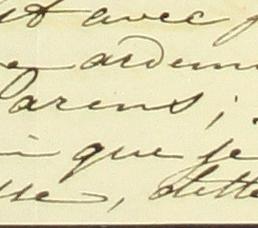 avec
ardem
Parens ;
que je
sse, dette